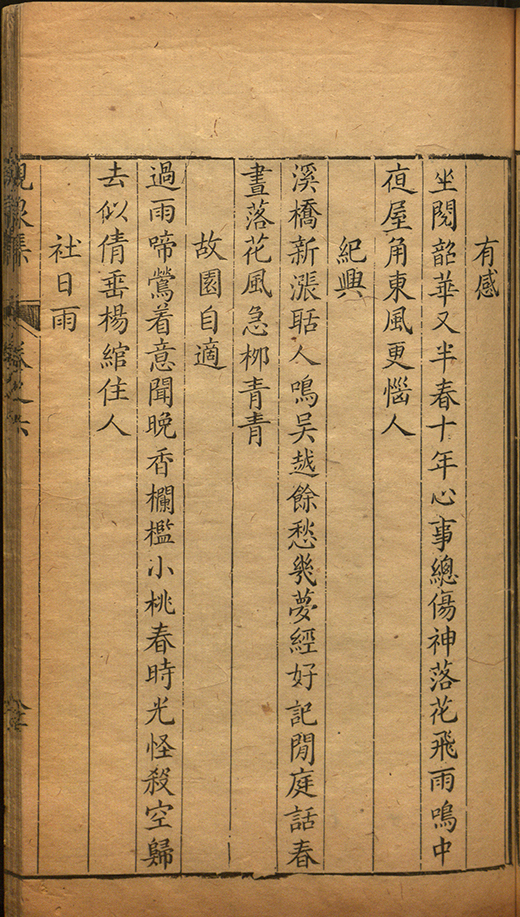 有感
坐閱韶華又半春十年心事總傷神落花飛雨嗚中
夜屋角東風更惱人
紀興
溪橋新漲聒人鳴吳越餘愁幾夢經好記閒庭話春
晝落花風急柳青青
故園自適
過雨啼鶯着意聞晚香欄檻小桃春時光怪殺空歸
去似倩垂楊綰住人
社日雨
卷之六